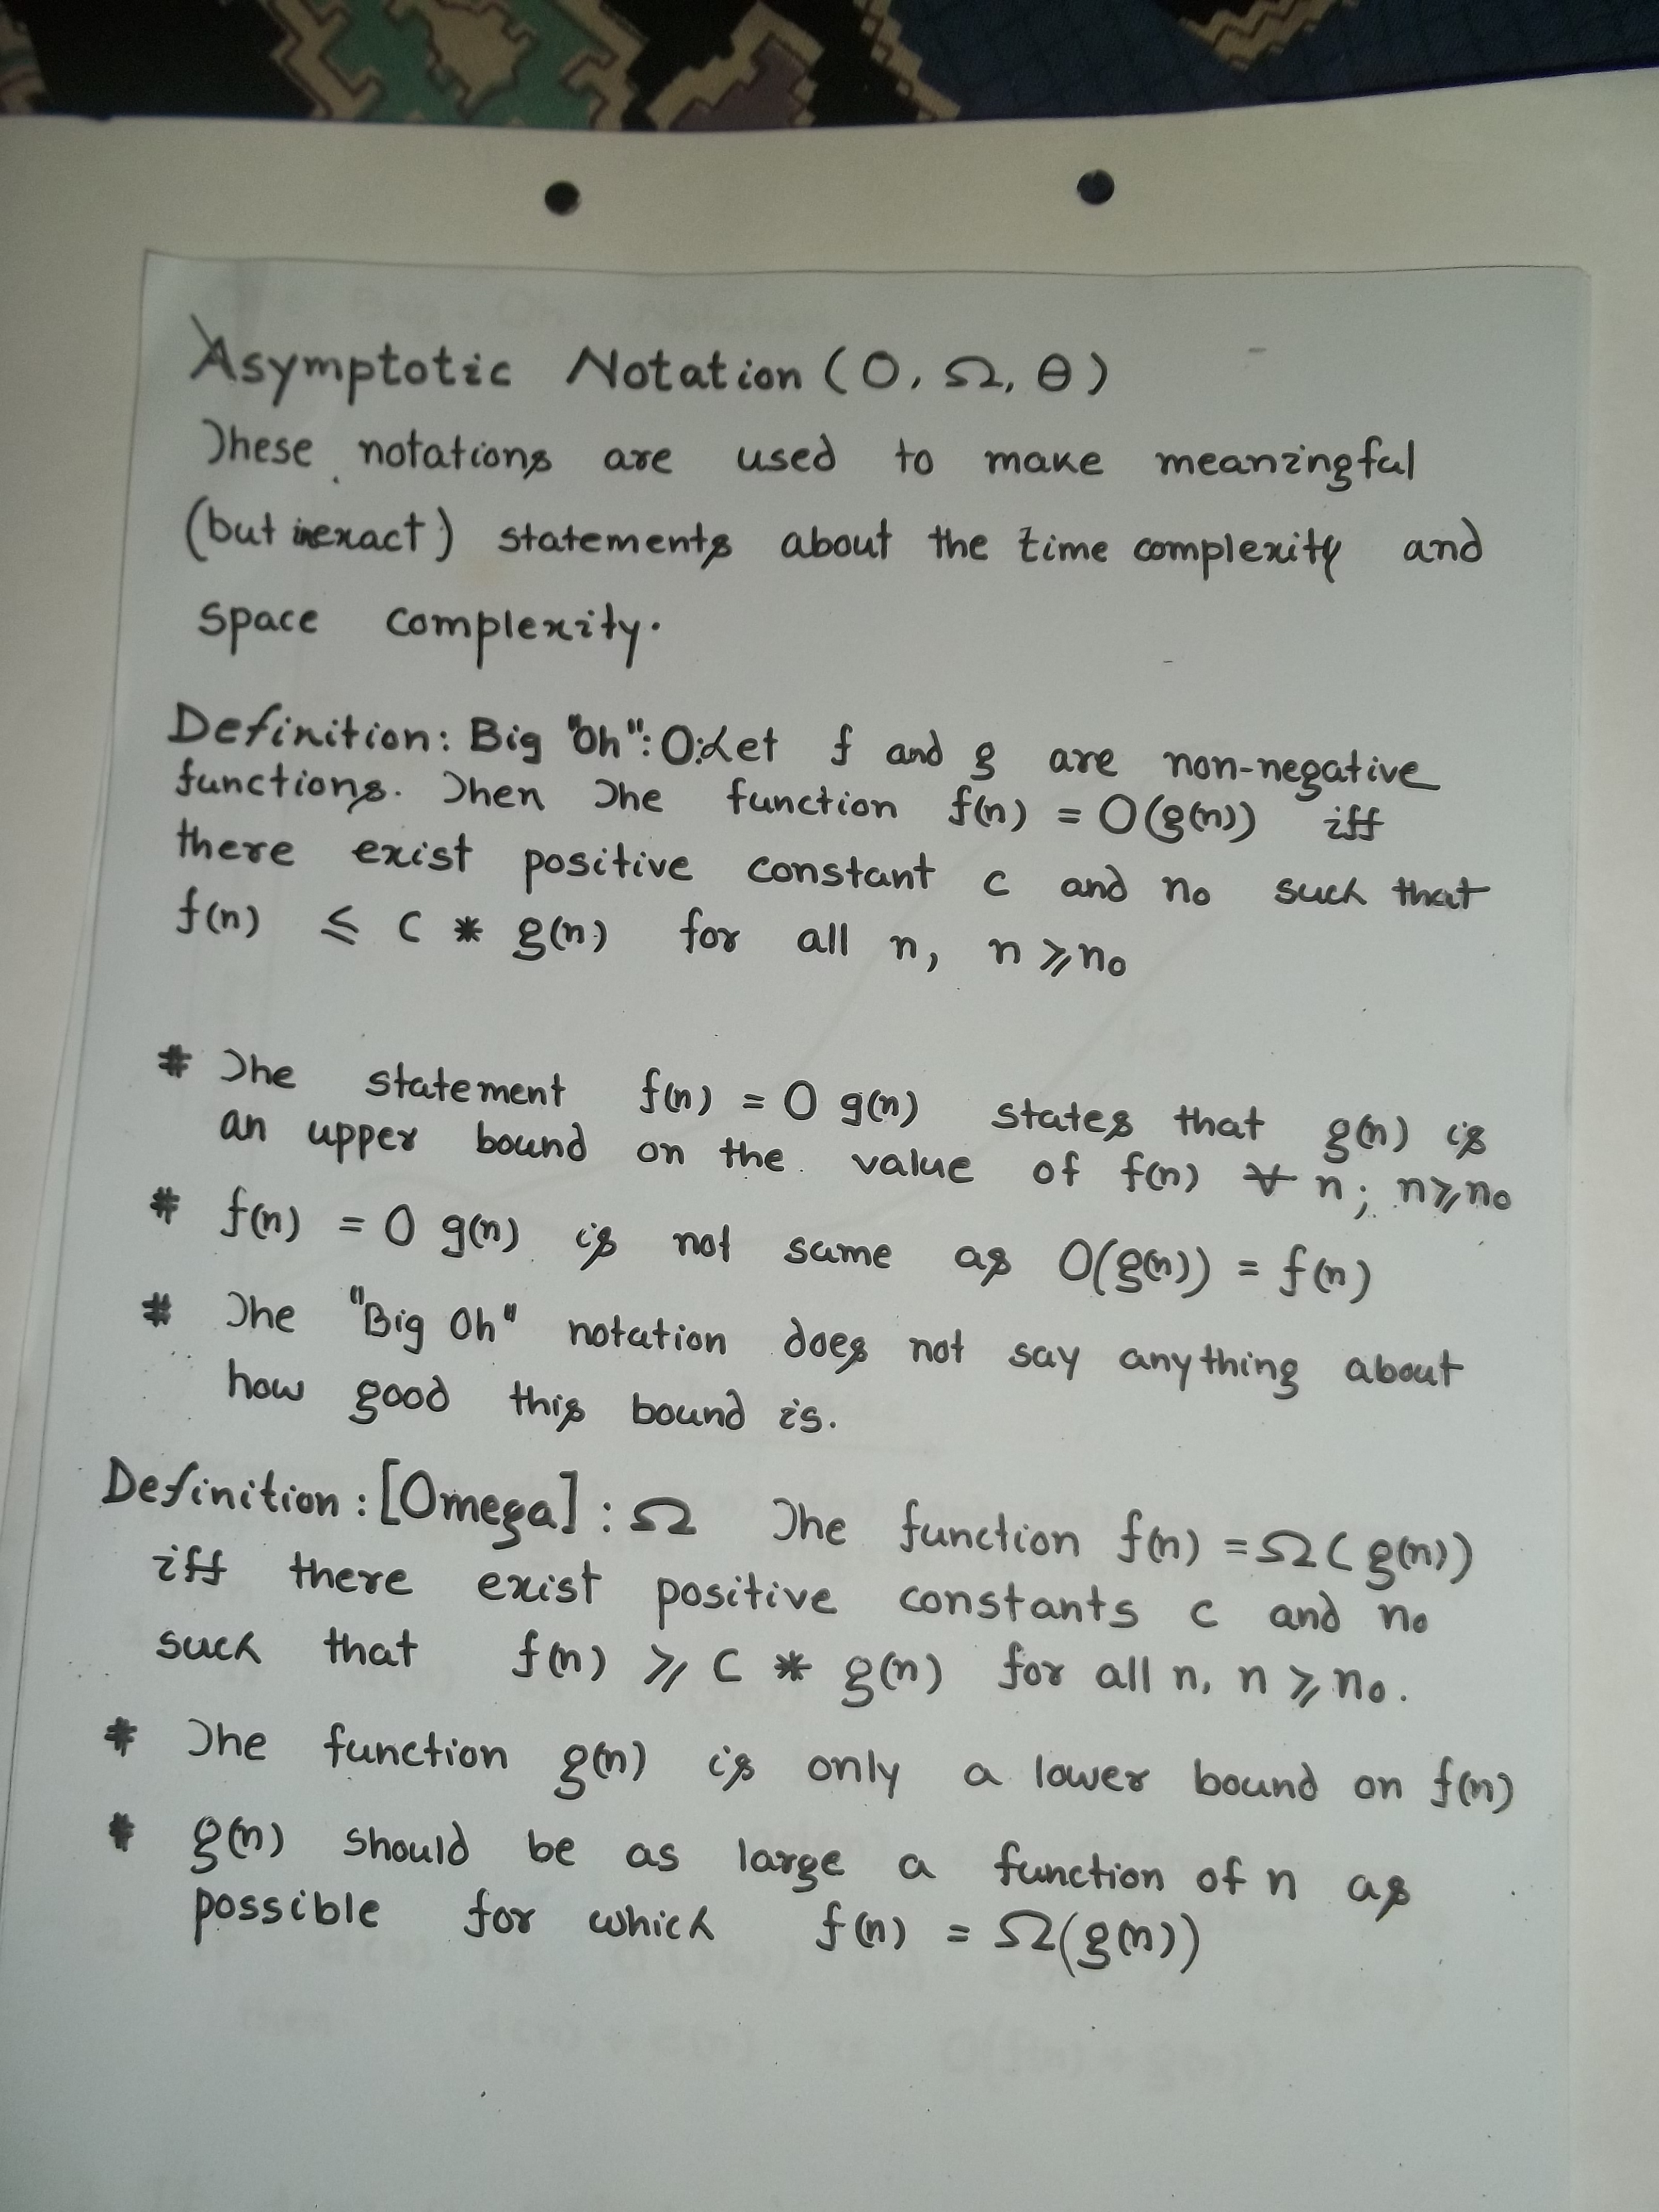 Asymptotic Notation (O, Ω, θ)
These notations are used to make meaningful
(but inexact) statements about the time complexity and
space complexity.
Definition: Big "Oh": O: Let f and g are non-negative
functions. Then The function f(n) = O(g(n)) iff
there exist positive constant c and n₀ such that
f(n) ≤ C * g(n) for all n, n ≥ n₀
# The statement f(n) = O g(n) states that g(n) is
an upper bound on the value of f(n) ∀ n; n ≥ n₀
# f(n) = O g(n) is not same as O(g(n)) = f(n)
# The "Big Oh" notation does not say anything about
how good this bound is.
Definition: [Omega] : Ω The function f(n) = Ω(g(n))
iff there exist positive constants c and n₀
such that f(n) ≥ C * g(n) for all n, n ≥ n₀.
# The function g(n) is only a lower bound on f(n)
# g(n) should be as large a function of n as
possible for which f(n) = Ω(g(n))